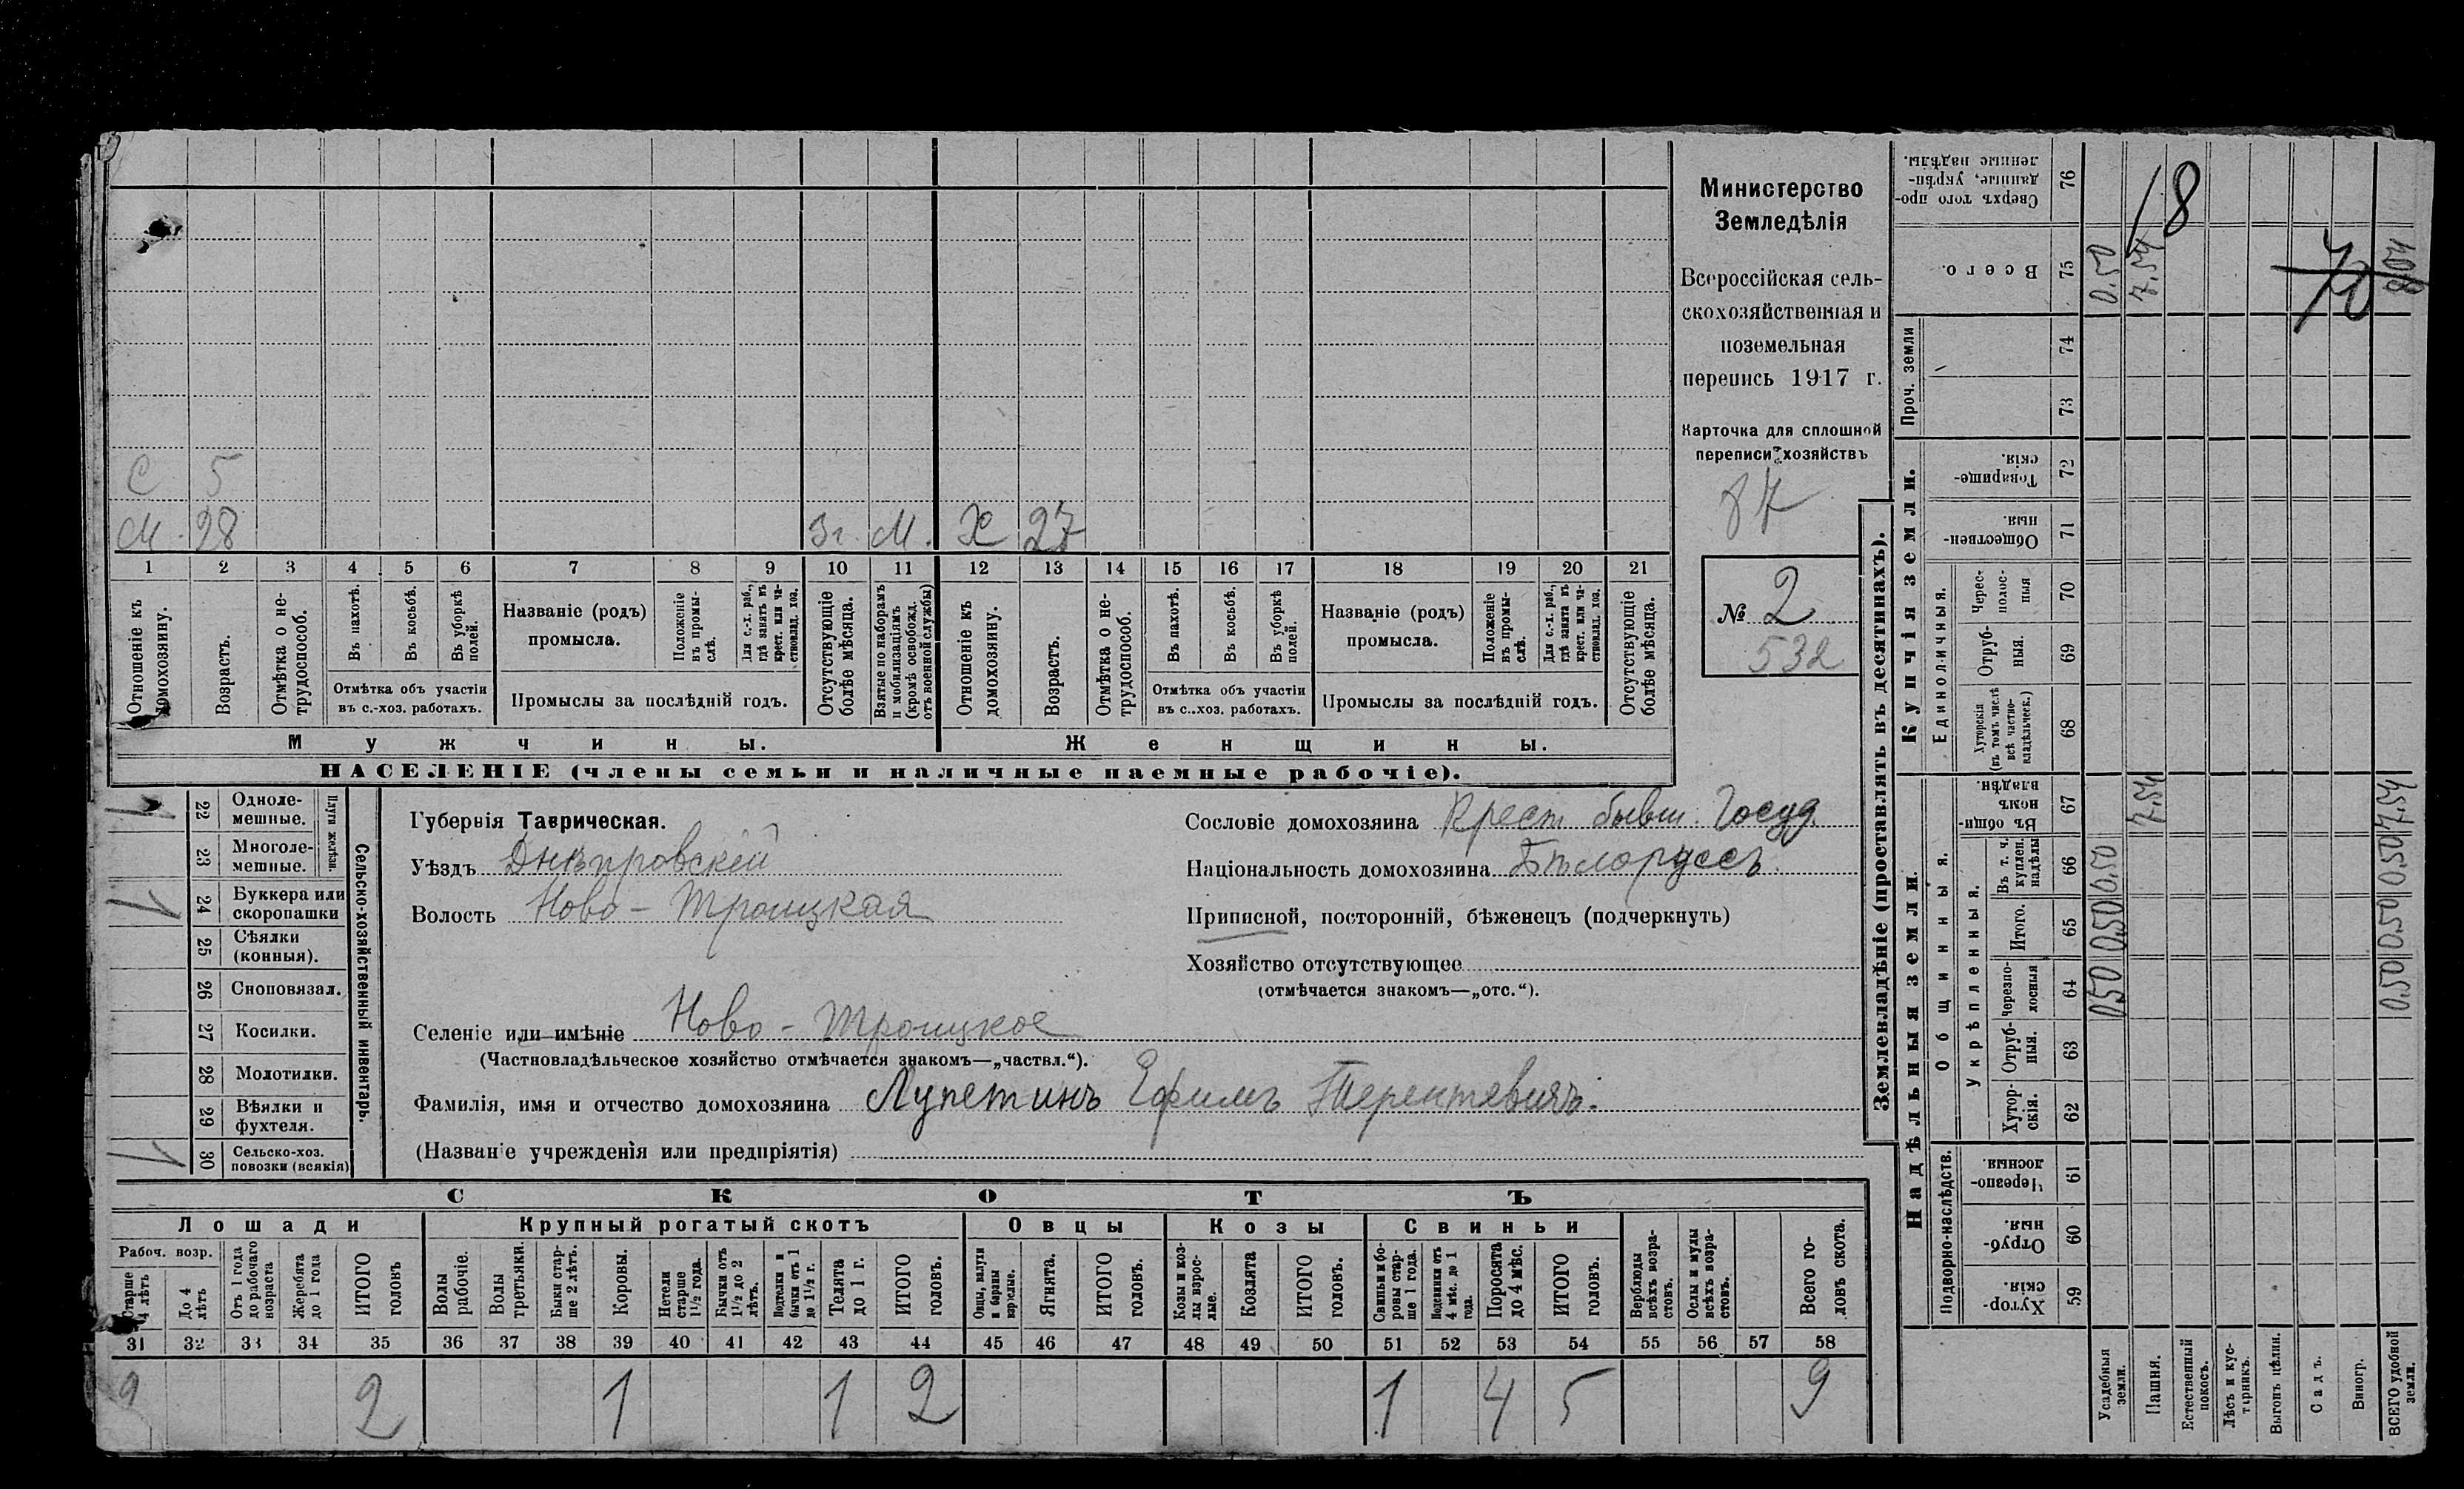 Министерство
Земледѣлія
Всероссійская сель-
скохозяйственная и
поземельная
перепись 1917 г.
Карточка для сплошной
переписи хозяйствъ
87
№ 2
532
С 5
М. 28 3 г. М. Ж 27
1 2 3 4 5 6 7 8 9 10 11 12 13 14 15 16 17 18 19 20 21
Отношеніе къ домохозяину.
Возрастъ.
Отмѣтка о не-трудоспособ.
Въ пахотѣ.
Въ косьбѣ.
Въ уборкѣ полей.
Отмѣтка объ участіи
въ с.-хоз. работахъ.
Названіе (родъ)
промысла.
Положеніе въ промы-слѣ.
Для с.-х. раб., гдѣ занятъ въ крест. или ча-стновлад. хоз.
Промыслы за послѣдній годъ.
Отсутствующіе болѣе мѣсяца.
Взятые по наборамъ и мобилизаціямъ (кромѣ освобожд. отъ военной службы)
Отношеніе къ домохозяину.
Возрастъ.
Отмѣтка о не-трудоспособ.
Въ пахотѣ.
Въ косьбѣ.
Въ уборкѣ полей.
Отмѣтка объ участіи
въ с.-хоз. работахъ.
Названіе (родъ)
промысла.
Положеніе въ промы-слѣ.
Для с.-х. раб., гдѣ занята въ крест. или ча-стновлад. хоз.
Промыслы за послѣдній годъ.
Отсутствующіе болѣе мѣсяца.
Мужчины. Женщины.
НАСЕЛЕНІЕ (члены семьи и наличные наемные рабочіе).
Сельско-хозяйственный инвентарь.
Плуги желѣзн.
22 Одноле-мешные.
23 Многоле-мешные.
24 Буккера или скоропашки
25 Сѣялки (конныя).
26 Сноповязал.
27 Косилки.
28 Молотилки.
29 Вѣялки и фухтеля.
30 Сельско-хоз. повозки (всякія)
Губернія Таврическая.
Уѣздъ Днѣпровскій
Волость Ново-Троицкая
Селеніе или имѣніе Ново-Троицкое
(Частновладѣльческое хозяйство отмѣчается знакомъ—„частвл.“).
Фамилія, имя и отчество домохозяина Лупетинъ Ефимъ Терентьевичъ.
(Названіе учрежденія или предпріятія)
Сословіе домохозяина Крест бывш. Госуд.
Національность домохозяина Бѣлоруссъ
Приписной, посторонній, бѣженецъ (подчеркнуть)
Хозяйство отсутствующее
(отмѣчается знакомъ—„отс.“).
СКОТЪ
Лошади Крупный рогатый скотъ Овцы Козы Свиньи
Рабоч. возр.
Старше 4 лѣтъ
До 4 лѣтъ
Отъ 1 года до рабочаго возраста
Жеребята до 1 года
ИТОГО головъ
Волы рабочіе.
Волы третьяки.
Быки стар-ше 2 лѣтъ.
Коровы.
Нетели старше 1½ года.
Бычки отъ 1½ до 2 лѣтъ.
Подтелки и бычки отъ 1 до 1½ г.
Телята до 1 г.
ИТОГО головъ.
Овцы, валухи и бараны взрослые.
Ягнята.
ИТОГО головъ.
Козы и коз-лы взрос-лые.
Козлята
ИТОГО головъ.
Свиньи и бо-ровы стар-ше 1 года.
Подсвинки отъ 4 мѣс. до 1 года.
Поросята до 4 мѣс.
ИТОГО головъ.
Верблюды всѣхъ возра-стовъ.
Ослы и мулы всѣхъ возра-стовъ.
Всего го-ловъ скота.
31 32 33 34 35 36 37 38 39 40 41 42 43 44 45 46 47 48 49 50 51 52 53 54 55 56 57 58
2 2 1 1 2 1 4 5 9
Землевладѣніе (проставлять въ десятинахъ).
Надѣльныя земли.
Купчія земли.
Проч. земли
Подворно-наслѣдств.
Общинныя.
Укрѣпленныя.
Единоличныя.
76 Сверхъ того про-данные, укрѣп-ленные надѣлы.
75 Всего.
74
73
72 Товарище-скія.
71 Обществен-ныя.
70 Черес-полос-ныя
69 Отруб-ныя.
68 Хуторскія (въ томъ числѣ всѣ частно-владѣльческ.)
67 Въ общи-номъ владѣн.
66 Въ т. ч. куплен. надѣлы
65 Итого.
64 черезпо-лосныя
63 Отруб-ныя.
62 Хутор-скія.
61 Черезпо-лосныя.
60 Отруб-ныя.
59 Хутор-скія.
Усадебныя земли.
Пашня.
Естественный покосъ.
Лѣсъ и кус-тарникъ.
Выгонъ цѣлин.
Садъ.
Виногр.
ВСЕГО удобной земли.
0.50 0.50 0.50 0.50
7.54 7.54
0.50 0.50 0.50 7.54 8.04
18